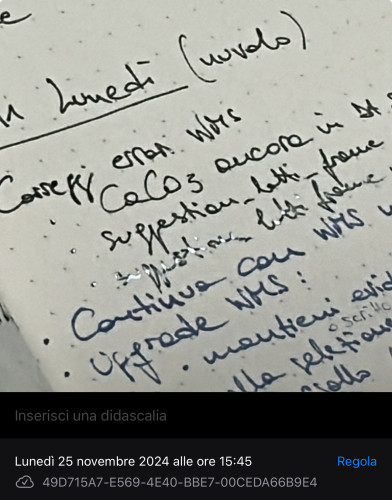 e
Lunedì (nuvolo)
Correggi errori WMS
CaCO3 ancora in
suggestion_lotti_frame
suggestion_lotti_frame
• Continua con WMS
• Upgrade WMS:
• mantieni
scritto
alla selezione
Inserisci una didascalia
Lunedì 25 novembre 2024 alle ore 15:45
Regola
49D715A7-E569-4E40-BBE7-00CEDA66B9E4